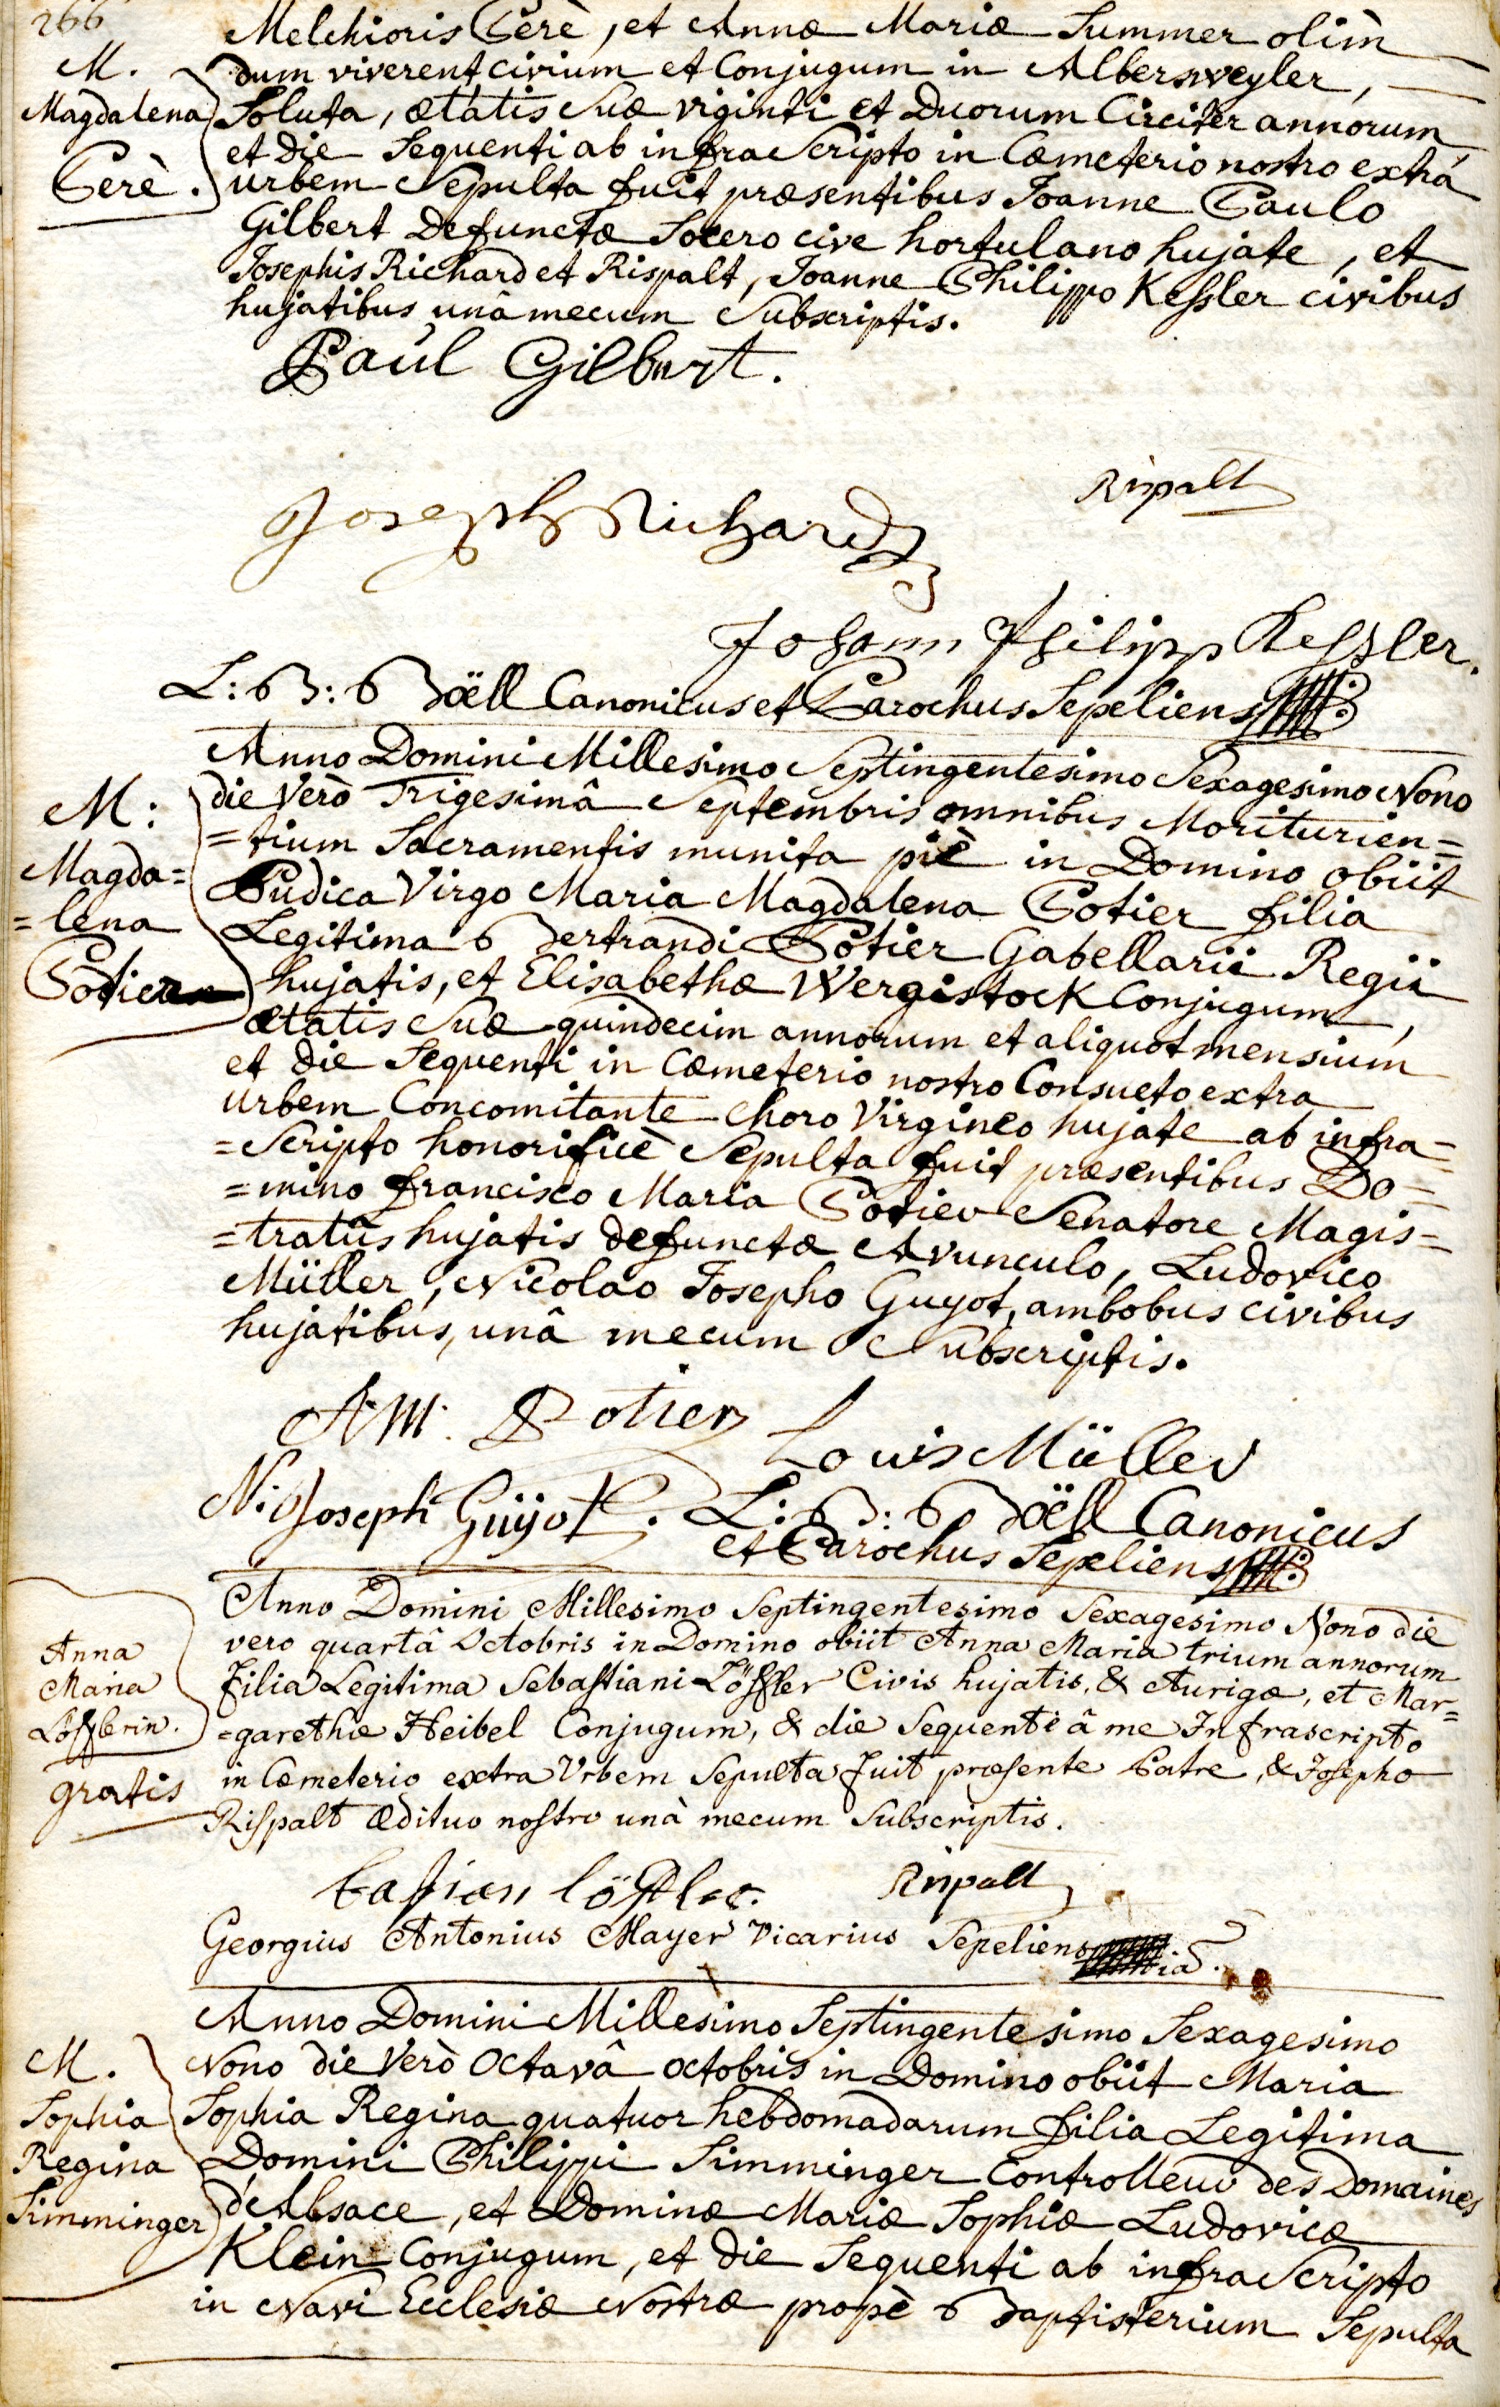 266
Melchioris Perè, et Annæ Mariæ Summer olim
dum viverent civium et Conjugum in Albersweyler,
M.
Magdalena
Perè.
Soluta, ætatis suæ viginti et Duorum Circiter annorum
et die Sequenti ab infra Scripto in Cœmeterio nostro extrá
urbem Sepulta fuit præsentibus Joanne Paulo
Gilbert Defunctæ Socero cive hortulano hujate, et
Josephis Richard et Rispalt, Joanne Philippo Kessler civibus
hujatibus unâ mecum Subscriptis.
Paul Gilbert.
Rispalt
Joseph Richard
Johann Philipp Kessler.
L: B: Böell Canonicus et Parochus Sepeliens
Anno Domini Millesimo Septingentesimo Sexagesimo Nono
M:
Magda=
=lena
Potier
die Verò Trigesimâ Septembris omnibus Moriturien=
=tium Sacramentis munita piè in Domino obiit
Pudica Virgo Maria Magdalena Potier filia
Legitima Bertrandi Potier Gabellarii Regii
hujatis, et Elisabethæ Wergistock Conjugum,
ætatis Suæ quindecim annorum et aliquot mensium
et die Sequenti in Cœmeterio nostro Consueto extra
urbem Concomitante Choro Virgineo hujate ab infra=
=Scripto honorificè Sepulta fuit præsentibus Do=
=mino Francisco Maria Potier Senatore Magis=
=tratûs hujatis defunctæ Avunculo, Ludovico
Müller, Nicolao Josepho Guyot, ambobus civibus
hujatibus, unâ mecum Subscriptis.
F. M. Potier
Louis Müller
N: Joseph Guÿot.
L: B: Böell Canonicus
et Parochus Sepeliens
Anno Domini Millesimo Septingentesimo Sexagesimo Nono die
Anna
Maria
Löfflerin.
gratis
vero quartâ Octobris in Domino obiit Anna Maria trium annorum
filia Legitima Sebastiani Löffler Civis hujatis, & Aurigæ, et Mar=
=garethæ Heibel Conjugum, & die Sequenti â me Infrascripto
in Cœmeterio extra Urbem Sepulta fuit præsente Patre, & Josepho
Rispalt ædituo nostro unà mecum Subscriptis.
Basian löffler.
Rispalt
Georgius Antonius Mayer Vicarius Sepeliens
Anno Domini Millesimo Septingentesimo Sexagesimo
M.
Sophia
Regina
Simminger
Nono die Verò Octavâ Octobris in Domino obiit Maria
Sophia Regina quatuor hebdomadarum filia Legitima
Domini Philippi Simminger Controlleur des Domaines
d'Alsace, et Dominæ Mariæ Sophiæ Ludovicæ
Klein Conjugum, et die Sequenti ab infra Scripto
in Navi Ecclesiæ Nostræ propè Baptisterium Sepulta